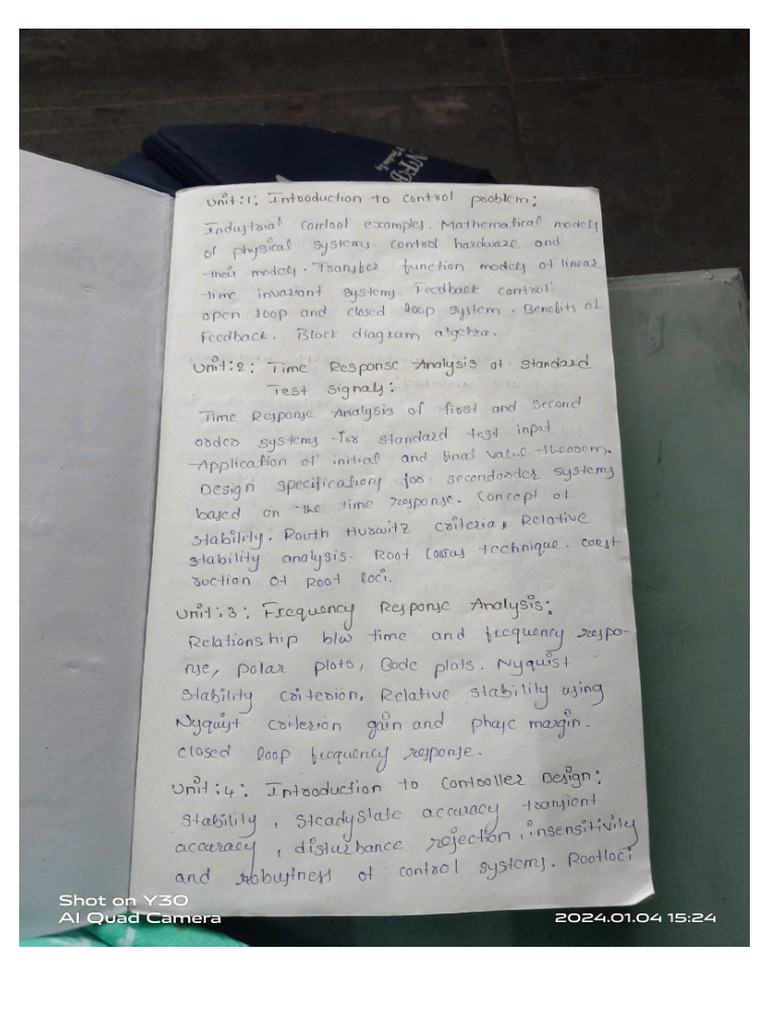 Unit:1: Introduction to control problem:
Industrial control examples. Mathematical models
of physical systems. control hardware and
their models. Transfer function models of linear
time invariant systems. Feedback control:
open loop and closed loop system. Benefits of
Feedback. Block diagram algebra.
Unit:2: Time Response Analysis of standard
Test signals:
Time Response Analysis of first and second
order systems for standard test input.
Application of initial and final value theorem.
Design specifications for secondorder systems
based on the time response. Concept of
stability. Routh Hurwitz criteria, Relative
stability analysis. Root Locus technique. const-
ruction of Root loci.
Unit:3: Frequency Response Analysis:
Relationship b/w time and frequency respo-
nse, polar plots, Bode plots. Nyquist
stability criterion, Relative stability using
Nyquist criterion gain and phase margin.
closed loop frequency response.
Unit:4: Introduction to Controller Design:
Stability, Steadystate accuracy transient
accuracy, disturbance rejection, insensitivity
and robustness of control systems. Rootloci
Shot on Y30
AI Quad Camera
2024.01.04 15:24